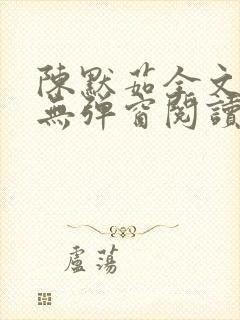 陳默茹全文
無彈窗閱讀
盧蕩